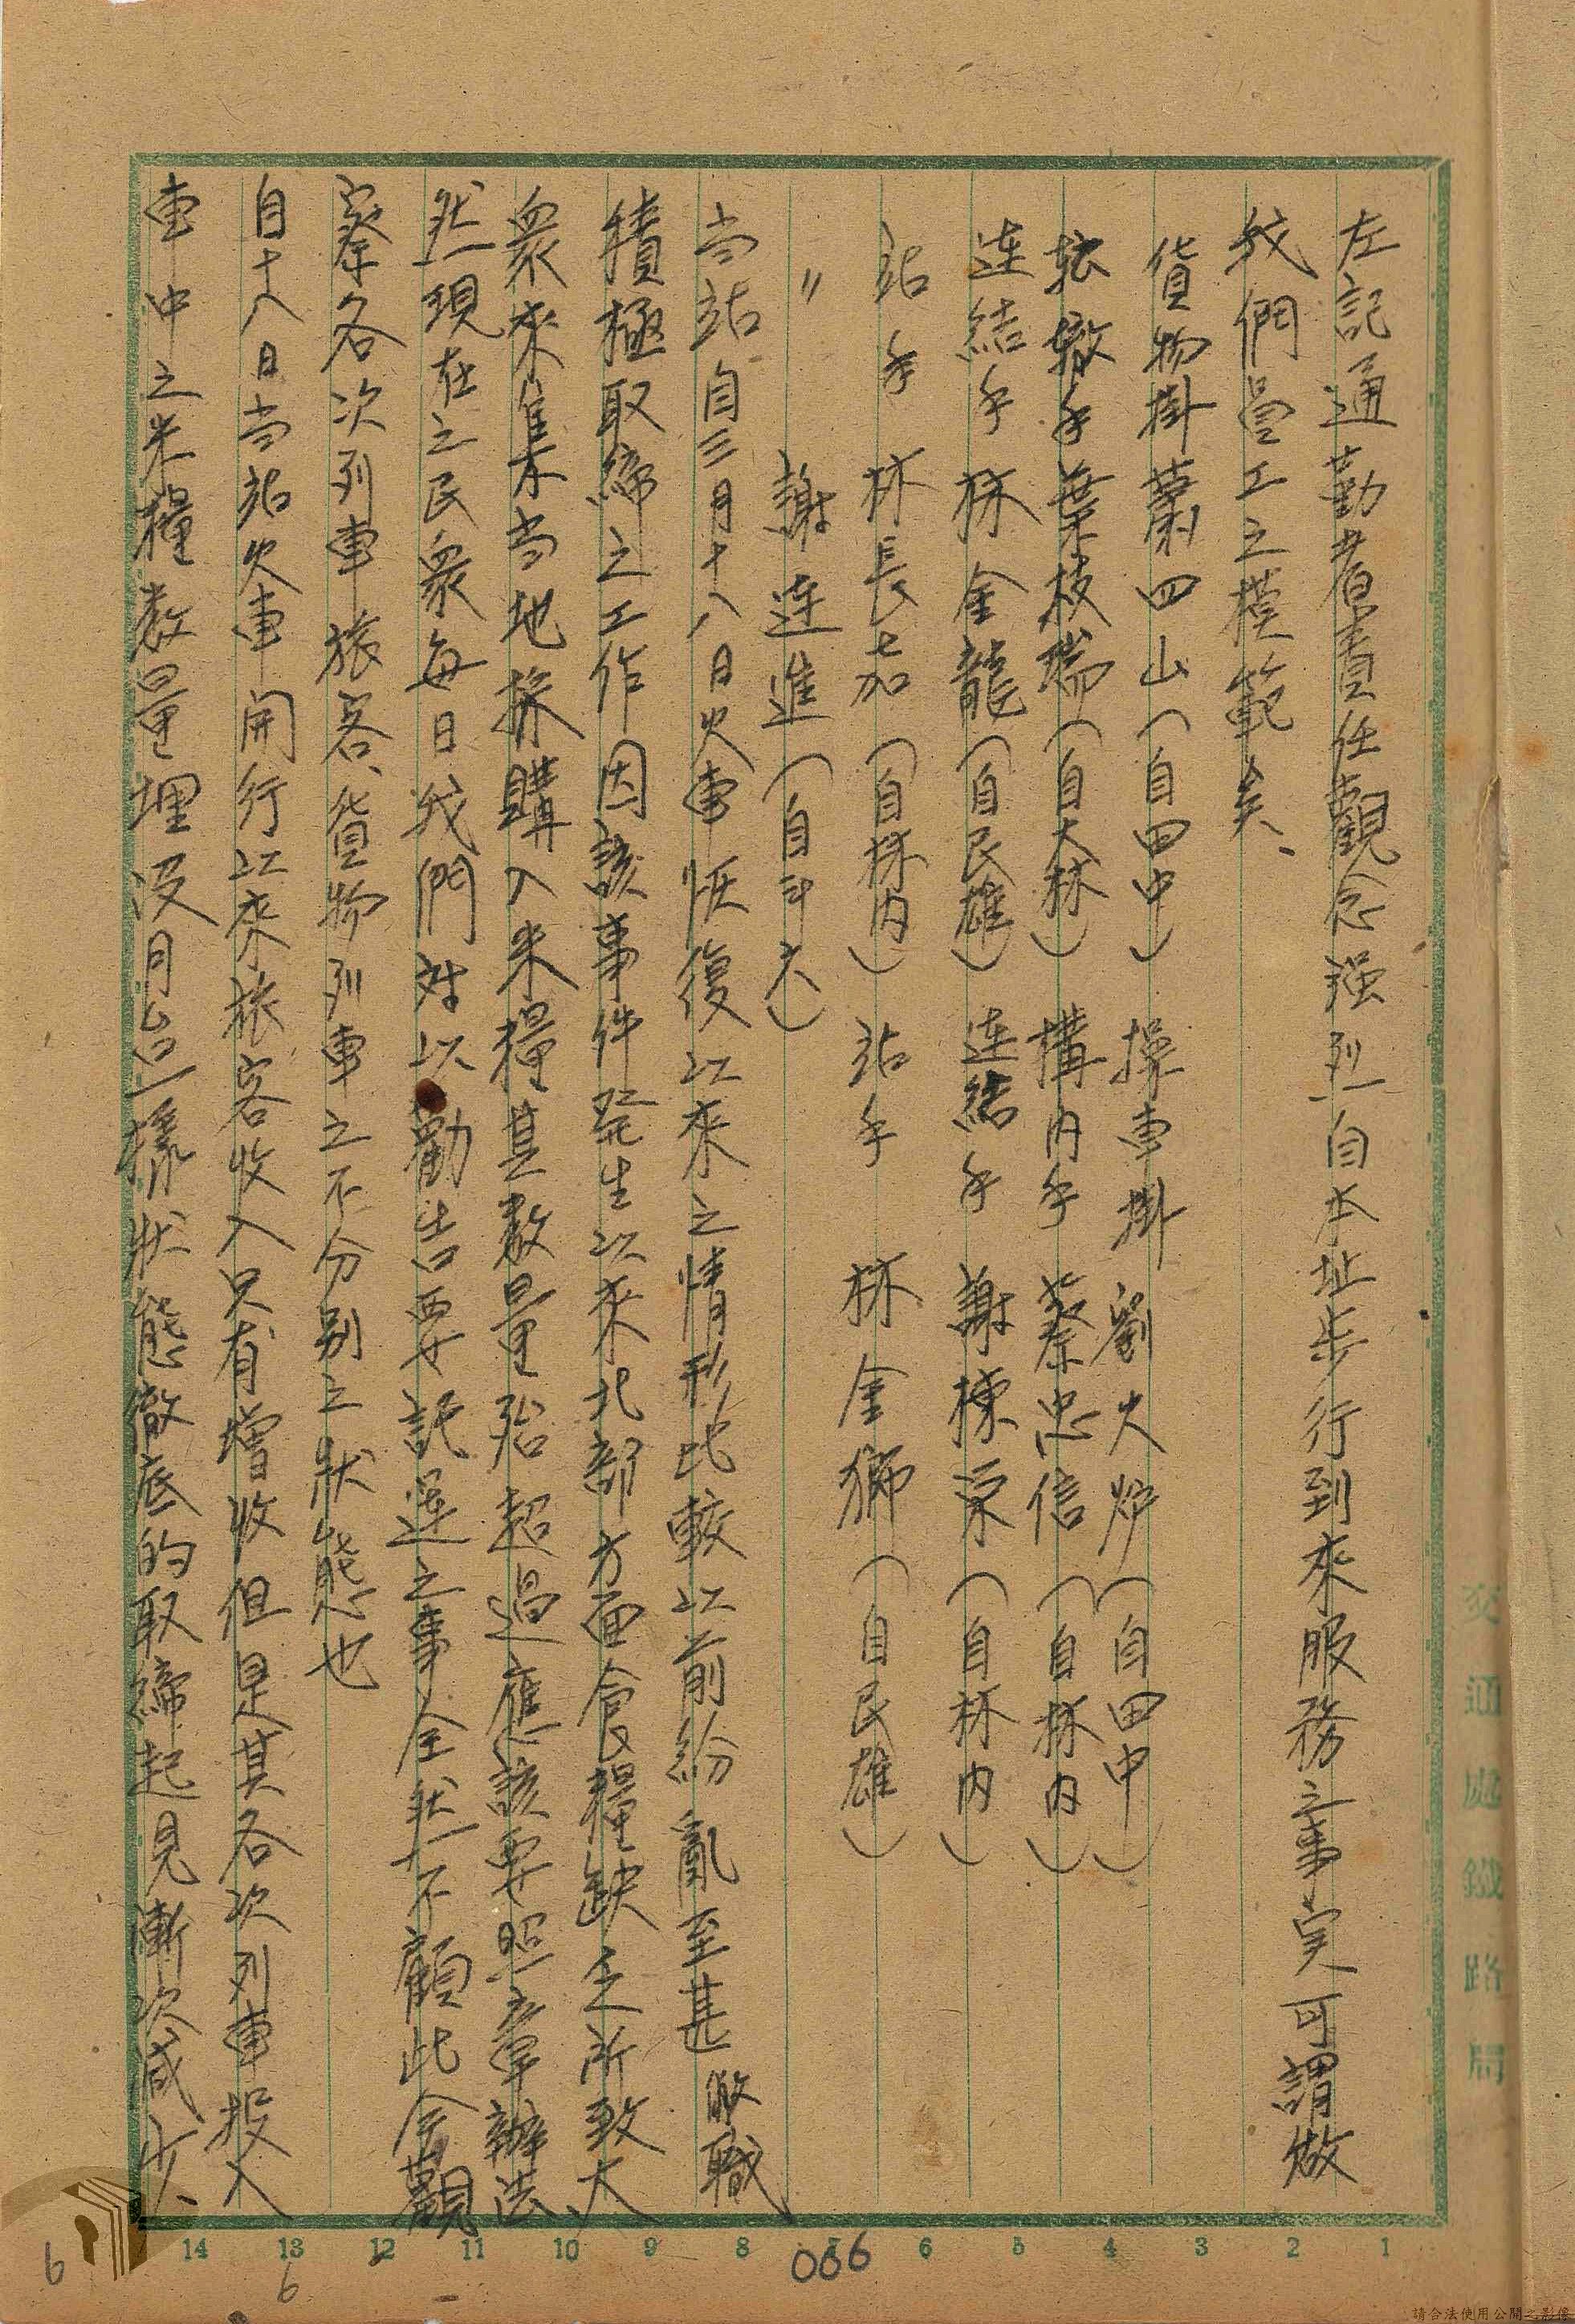 左記通勤者責任觀念强烈自本址步行到來服務之事実可謂做
我們員工之模範矣、
貨物掛 蕭四山(自田中) 操車掛 劉火炉(自田中)
転轍手 葉枝瑞(自大林) 構内手 蔡忠信(自林内)
連結手 林金龍(自民雄) 連結手 謝棟梁(自林内)
站手 林長加(自林内) 站手 林金獅(自民雄)
〃 謝連進(自斗六)
当站自三月十八日火車恢復以來之情形比較以前紛亂至甚 敝職
積極取締之工作因該事件発生以來北部方面食糧缺乏所致大
衆來集当地採購入米糧其數量殆超過應該要照章辦法、
然現在之民衆每日我們対以勸告要託運之事全然不顧此今觀
察各次列車旅客、貨物列車之不分別之狀態也
自十八日当站火車開行以來旅客收入只有增收但是其各次列車投入
車中之米糧数量埋没月台一樣狀態徹底的取締起見漸次減少、
交通處鐵路局
1 2 3 4 5 6 7 8 9 10 11 12 13 14
066
6
6
請合法使用公開之影像